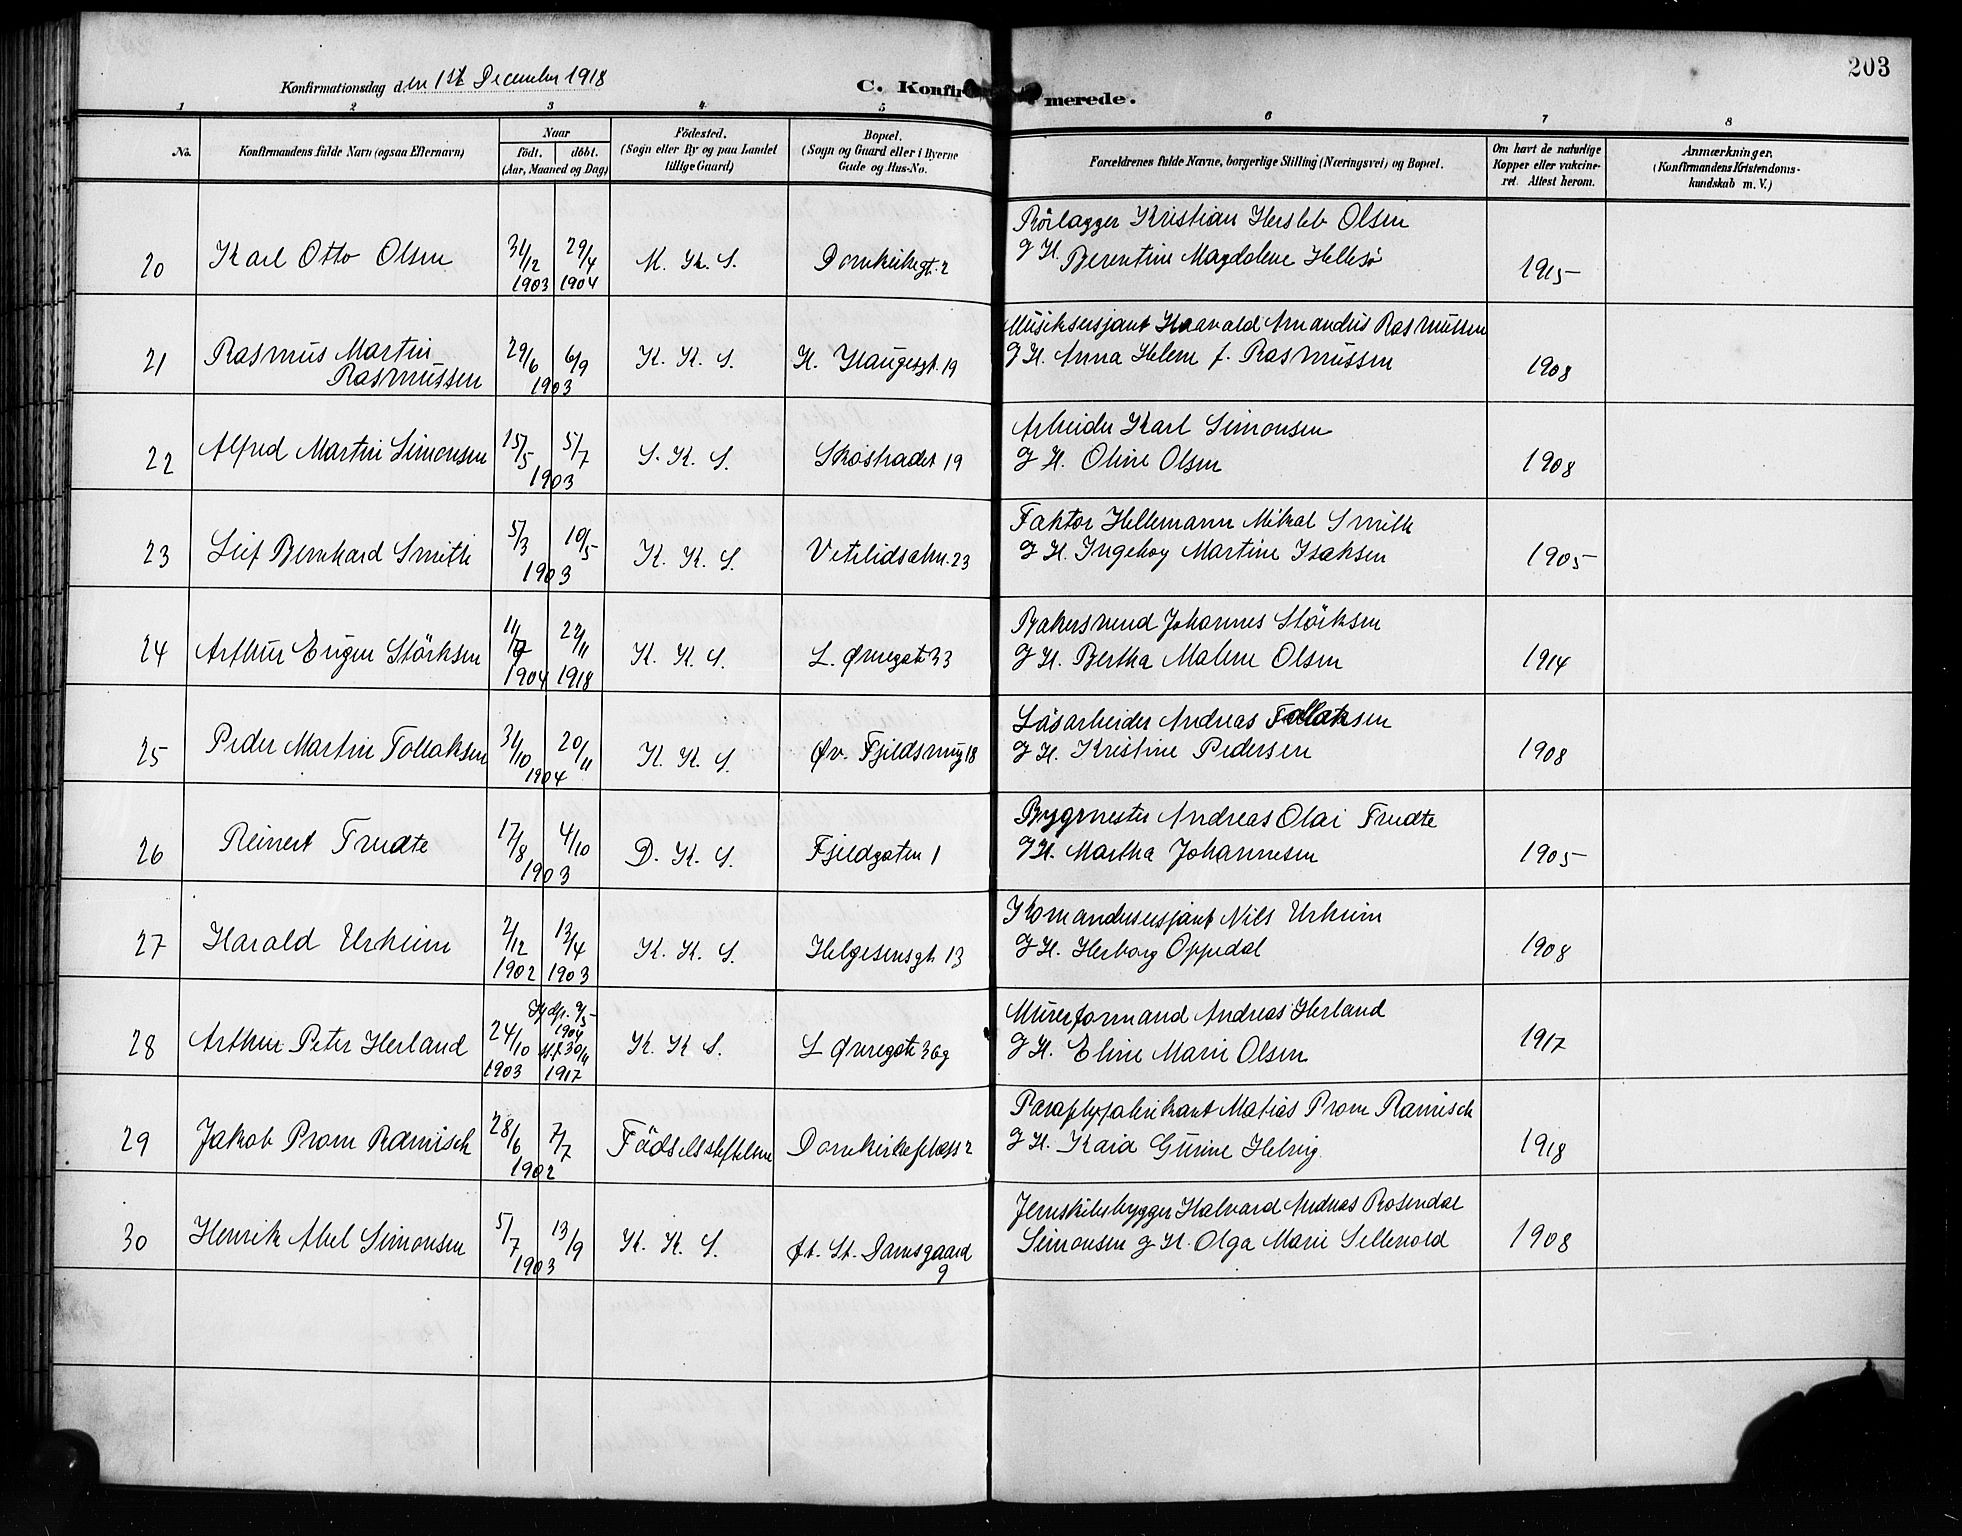 203
Konfirmationsdag den 1st December 1918
C. Konfirmerede.
1 2 3 4 5 6 7 8
No.
Konfirmandens fulde Navn (ogsaa Efternavn)
Naar
födt. döbt.
(Aar, Maaned og Dag)
Födested.
(Sogn eller By og paa Landet
tillige Gaard)
Bopæl.
(Sogn og Gaard eller i Byerne
Gade og Hus-No.
Forældrenes fulde Navne, borgerlige Stilling (Næringsvei) og Bopæl.
Om havt de naturlige
Kopper eller vakcine-
ret. Attest herom.
Anmærkninger.
(Konfirmandens Kristendoms-
kundskab m. V.)
20 Karl Otto Olsen 31/12 1903 29/4 1904 M. K. S. Domkirkegt. 2
Rörlægger Kristian Hersleb Olsen
g H. Berentine Magdalene Hellesö 1915
21 Rasmus Martin
Rasmussen 29/6 6/9 1903 K. K. S. H. Haugesgt. 19
Musiksersjant Haavald Amandus Rasmussen
g H. Anna Helene f. Rasmussen 1908
22 Alfred Martin Simonsen 15/5 5/7 1903 S. K. S. Skostradet 19
Arbeider Karl Simonsen
g H. Oline Olsen 1908
23 Leif Bernhard Smith 5/3 10/5 1903 K. K. S. Vetrlidsalm. 23
Faktor Hellemann Mikal Smith
g H. Ingeborg Martine Isaksen 1905
24 Arthur Eugen Störksen 11/7 1904 22/11 1918 K. K. S. L. Øvregate 33
Bakersvend Johannes Störksen
g H. Bertha Malene Olsen 1914
25 Peder Martin Tollaksen 31/10 20/11 1904 K. K. S. Øv. Fjeldsmug 18
Løsarbeider Andreas Tollaksen
g H. Kristine Pedersen 1908
26 Reinert Fredte 17/8 4/10 1903 D. K. S. Fjeldgaten 1
Bygmester Andreas Olai Fredte
g H. Martha Johannesen 1905
27 Harald Urheim 2/12 1902 13/4 1903 K. K. S. Helgesensgt. 13
Komandersersjant Nils Urheim
g H. Herborg Oppedal 1908
28 Arthur Peter Herland 24/10 1903 Hjdp. 9/5 1904 st.f. 30/11 1917 K. K. S. L Øvregate 36g
Murerformand Andreas Herland
g H. Eline Marie Olsen 1917
29 Jakob Prom Ramisch 28/6 7/7 1902 Födselsstiftelsen Domkirkeplass 2
Paraplyfabrikant Matias Prom Ramisch
g H. Kaia Gurine Helvig 1918
30 Henrik Abel Simonsen 5/7 13/9 1903 K. K. S. Øt. St. Damsgaard
9
Jernskibsbygger Halvard Andreas Rosendal
Simonsen g H. Olga Marie Sellevold 1908